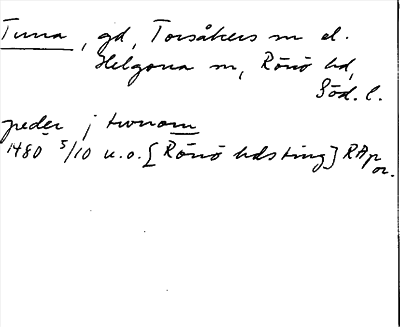 Tuna, gd, Torsåkers sn el.
Helgona sn, Rönö hd,
Söd. l.
peder j twnom
1480 5/10 u.o. [Rönö hdsting] RAp
or.